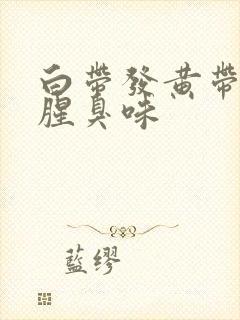 白帶發黃帶
腥臭味
藍繆